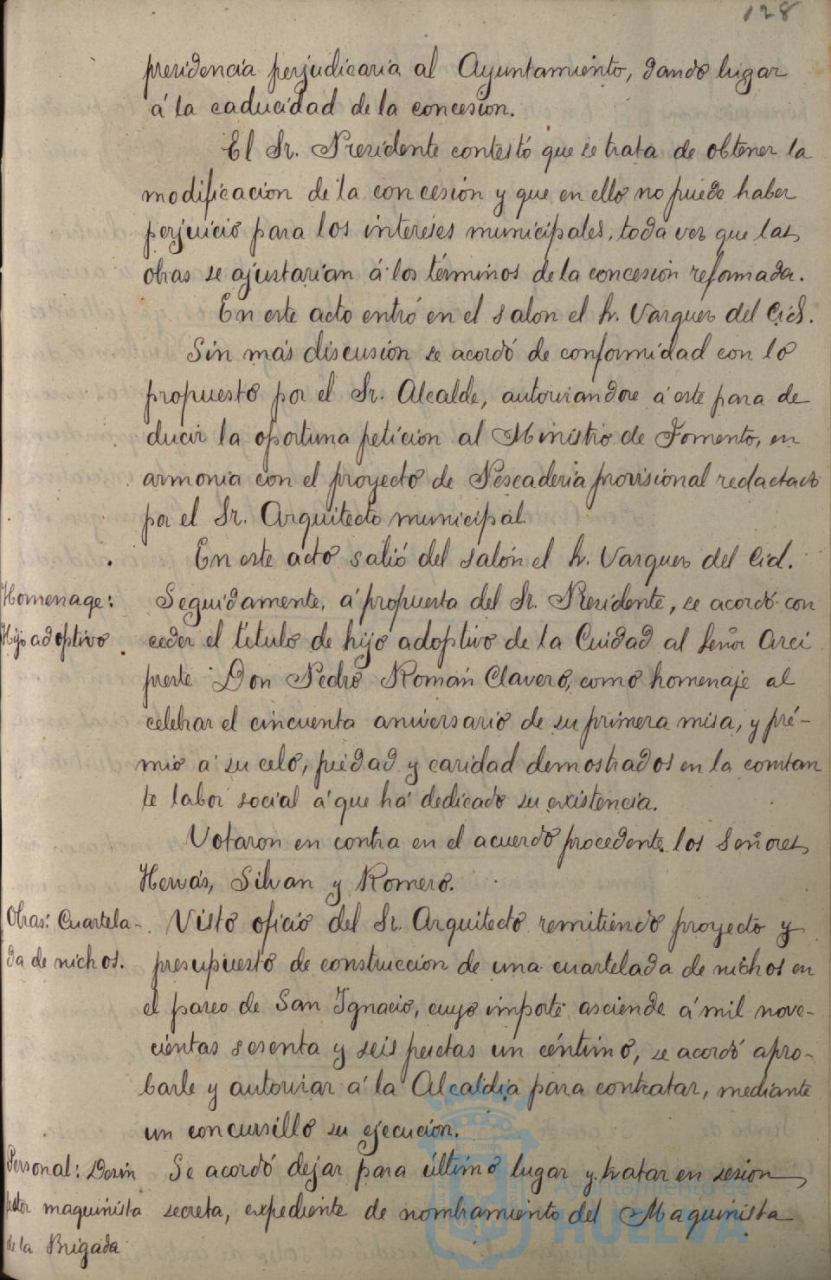 128
presidencia perjudicaria al Ayuntamiento, dando lugar
á la caducidad de la concesion.
El Sr. Presidente contestó que se trata de obtener la
modificacion de la concesión y que en ello no puede haber
perjuicio para los intereses municipales, toda vez que las
obras se ajustarian á los términos de la concesion reformada.
En este acto entró en el salon el Sr. Varquez del Cid.
Sin más discusión se acordó de conformidad con lo
propuesto por el Sr. Alcalde, autorizandose á este para de
ducir la oportuna petición al Ministrio de Fomento, en
armonia con el proyecto de Pescaderia provisional redactado
por el Sr. Arquitecto municipal
En este acto salió del salón el Sr. Varquez del Cid.
Homenage:
Hijo adoptivo.
Seguidamente, á propuesta del Sr. Presidente, se acordó con
ceder el título de hijo adoptivo de la Cuidad al Señor Arci
preste Don Pedro Román Clavero, como homenaje al
celebrar el cincuenta aniversario de su primera misa, y pré-
mio á su celo, piedad y caridad demostrados en la constan
te labor social á que há dedicado su existencia.
Votaron en contra en el acuerdo procedente los Señores
Hervás, Silvan y Romero.
Obras: Cuartela-
da de nichos.
Visto oficio del Sr. Arquitecto remitiendo proyecto y
presupuesto de construccion de una cuartelada de nichos en
el paseo de San Ignacio, cuyo importe asciende á mil nove-
cientas sesenta y seis pesetas un céntimo, se acordó apro-
barle y autorizar á la Alcaldia para contratar, mediante
un concursillo su ejecución.
Personal:
maquinista
de la Brigada
Se acordó dejar para último lugar y tratar en sesion
secreta, expediente de nombramiento del Maquinista
Ayuntamiento de
HUELVA